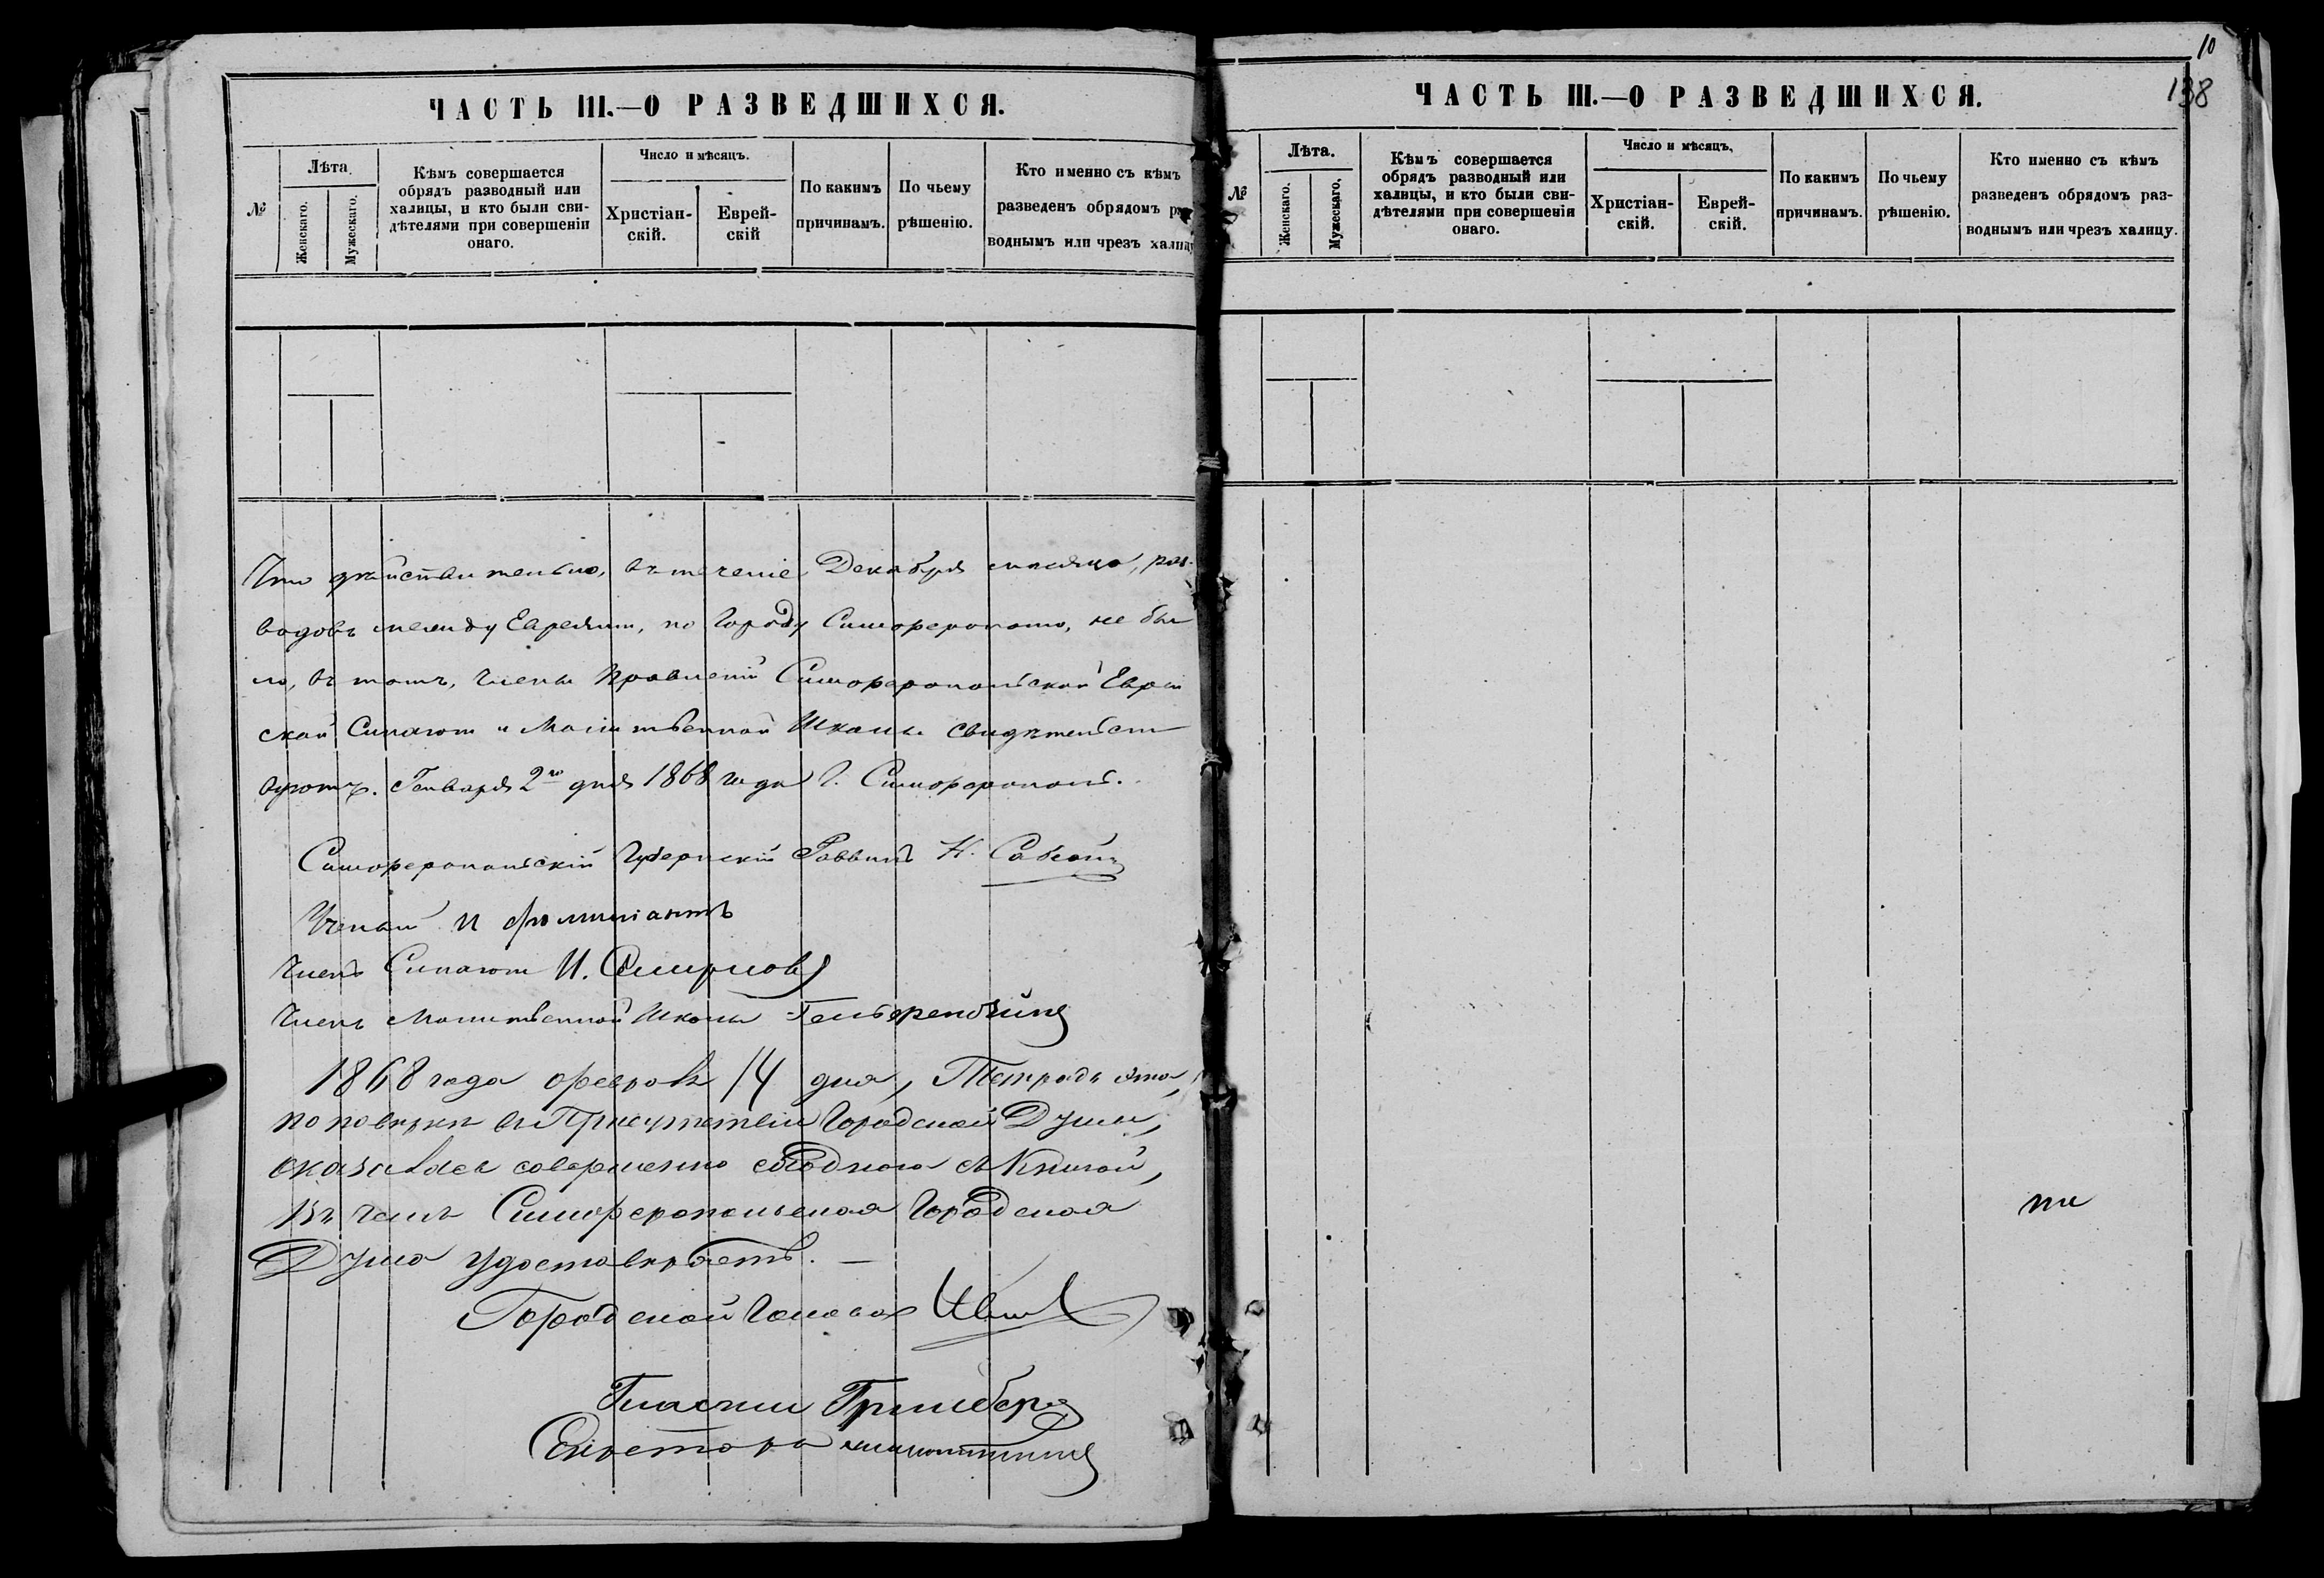 ЧАСТЬ III.—О РАЗВЕДШИХСЯ.
№
Лѣта.
Женскаго.
Мужескаго.
Кѣмъ совершается
обрядъ разводный или
халицы, и кто были сви-
дѣтелями при совершеніи
онаго.
Число и мѣсяцъ.
Христіан-
скій.
Еврей-
скій
По какимъ
причинамъ.
По чьему
рѣшенію.
Кто именно съ кѣмъ
разведенъ обрядомъ ра
воднымъ или чрезъ халиц
Что дѣйствительно, въ теченіе Декабря мѣсяца, раз-
водовъ между Евреями, по Городу Симферополю, не бы
ло, въ томъ, Члены Правленій Симферопольской Еврей
ской Синагоги и Молитвенной Школы свидѣтельст
вуютъ. Генваря 2го дня 1868 года Г. Симферополь.
Симферопольскій Губернскій Раввинъ
Ученый
Членъ Синагоги И. Смирновъ
Членъ Молитвенной Школы
1868 года февраля 14 дня, Тетрадь эта,
по повѣркѣ въ Присутствіи Городской Думы,
оказалась совершенно сходною съ Книгой,
Въ чемъ Симферопольская Городская
Дума удостовѣряетъ. —
Городской Голова
Гласный Гринберг
Секретарь
10
138
ЧАСТЬ III.—О РАЗВЕДШИХСЯ.
№
Лѣта.
Женскаго.
Мужескаго.
Кѣмъ совершается
обрядъ разводный или
халицы, и кто были сви-
дѣтелями при совершеніи
онаго.
Число и мѣсяцъ.
Христіан-
скій.
Еврей-
скій.
По какимъ
причинамъ.
По чьему
рѣшенію.
Кто именно съ кѣмъ
разведенъ обрядомъ раз-
воднымъ или чрезъ халицу.